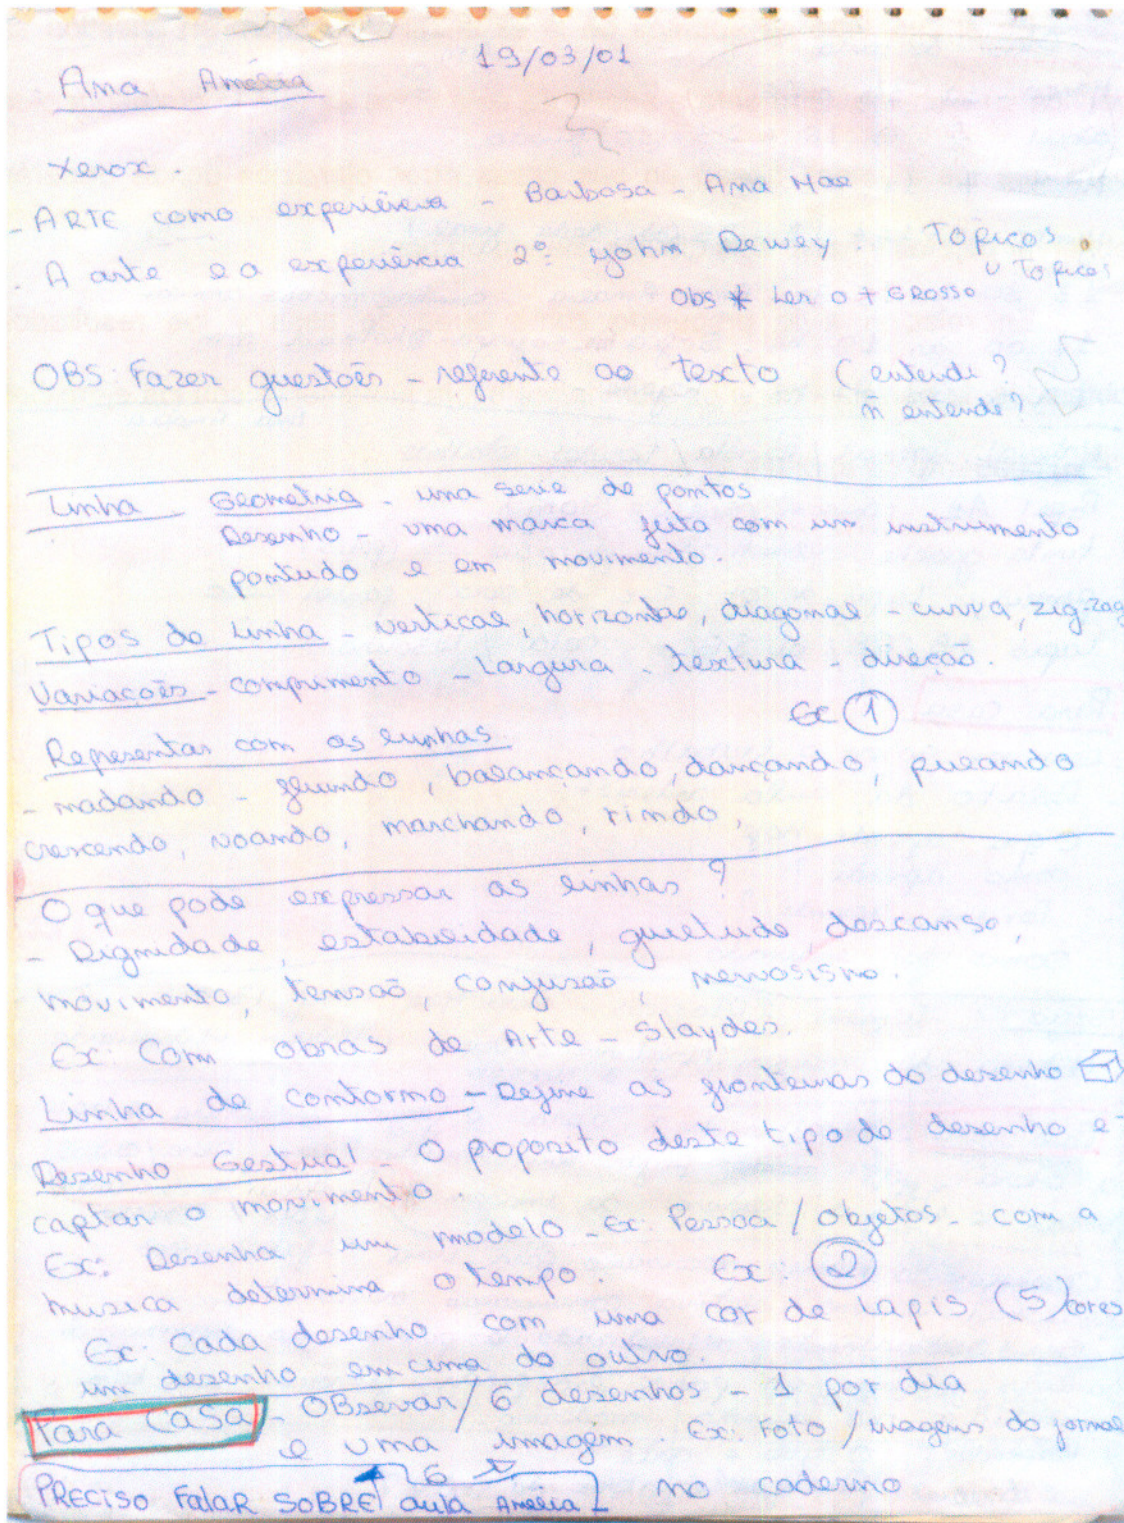 19/03/01
Ana Amélia
Xerox.
- ARTE como experiência - Barbosa - Ana Mae
- A arte e a experiência 2º: yohn Dewey. Topicos.
U Topicos
Obs * Ler o + GROSSO
OBS: Fazer questoēs - referente ao texto (entendi?
ñ entende?
Linha - Geometria - uma serie de pontos
Desenho - uma marca feita com um instrumento
pontudo e em movimento.
Tipos de Linha - vertical, horizontal, diagonal - curva, zig-zag
Variacoēs - comprimento - Largura - textura - direção.
Ex 1
Representar com as linhas
- nadando - , balançando, dançando, pulando
crescendo, voando, marchando, rindo,
O que pode expressar as linhas?
- Dignidade, estabilidade, quietude, descanso,
movimento, tensaõ, confusaõ, nervosismo.
Ex: Com obras de Arte - Slaydes.
Linha de contorno - Define as fronteiras do desenho
Desenho Gestual - O proposito deste tipo de desenho e-
captar o movimento.
Ex: Desenha um modelo - Ex: Pessoa / objetos - com a
musica determina o tempo. Ex: 2
Ex: Cada desenho com uma cor de Lapis (5) cores
um desenho em cima do outro.
Para CaSa - OBservar / 6 desenhos - 1 por dia
e uma imagem. Ex: Foto / imagens do jornal
6
PRECISO FalaR SOBRE aula Amélia no caderno